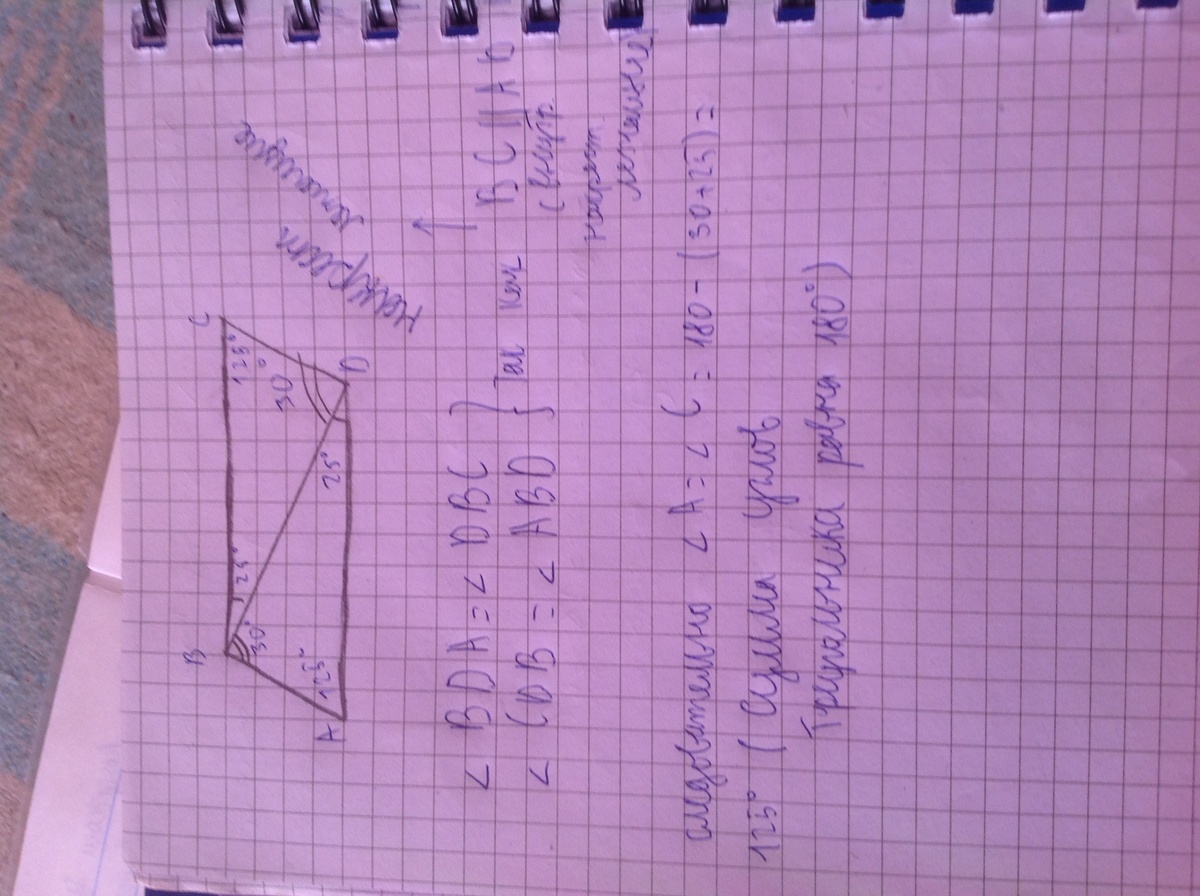 B
C
25°
125°
30°
30°
125°
25°
A
D
накрест
лежащие
< BDA = < DBC } Так как BC || AD
< CDB = < ABD
(внутр.
накрест
лежащие)
следовательно < A = < C = 180 - (30+25) =
125° (Сумма углов
Треугольника равна 180°)